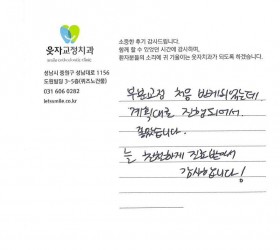 웃자교정치과
smile orthodontic clinic
성남시 중원구 성남대로 1156
도원빌딩 3~5층(퀴즈노건물)
031 606 0282
letssmile.co.kr
소중한 후기 감사드립니다.
함께 할 수 있었던 시간에 감사하며,
환자분들의 소리에 귀 기울이는 웃자치과가 되도록 하겠습니다.
부분교정 처음 해봤는데
계획대로 진행되어서
좋았습니다.
늘 친절하게 진료받아서
감사합니다!